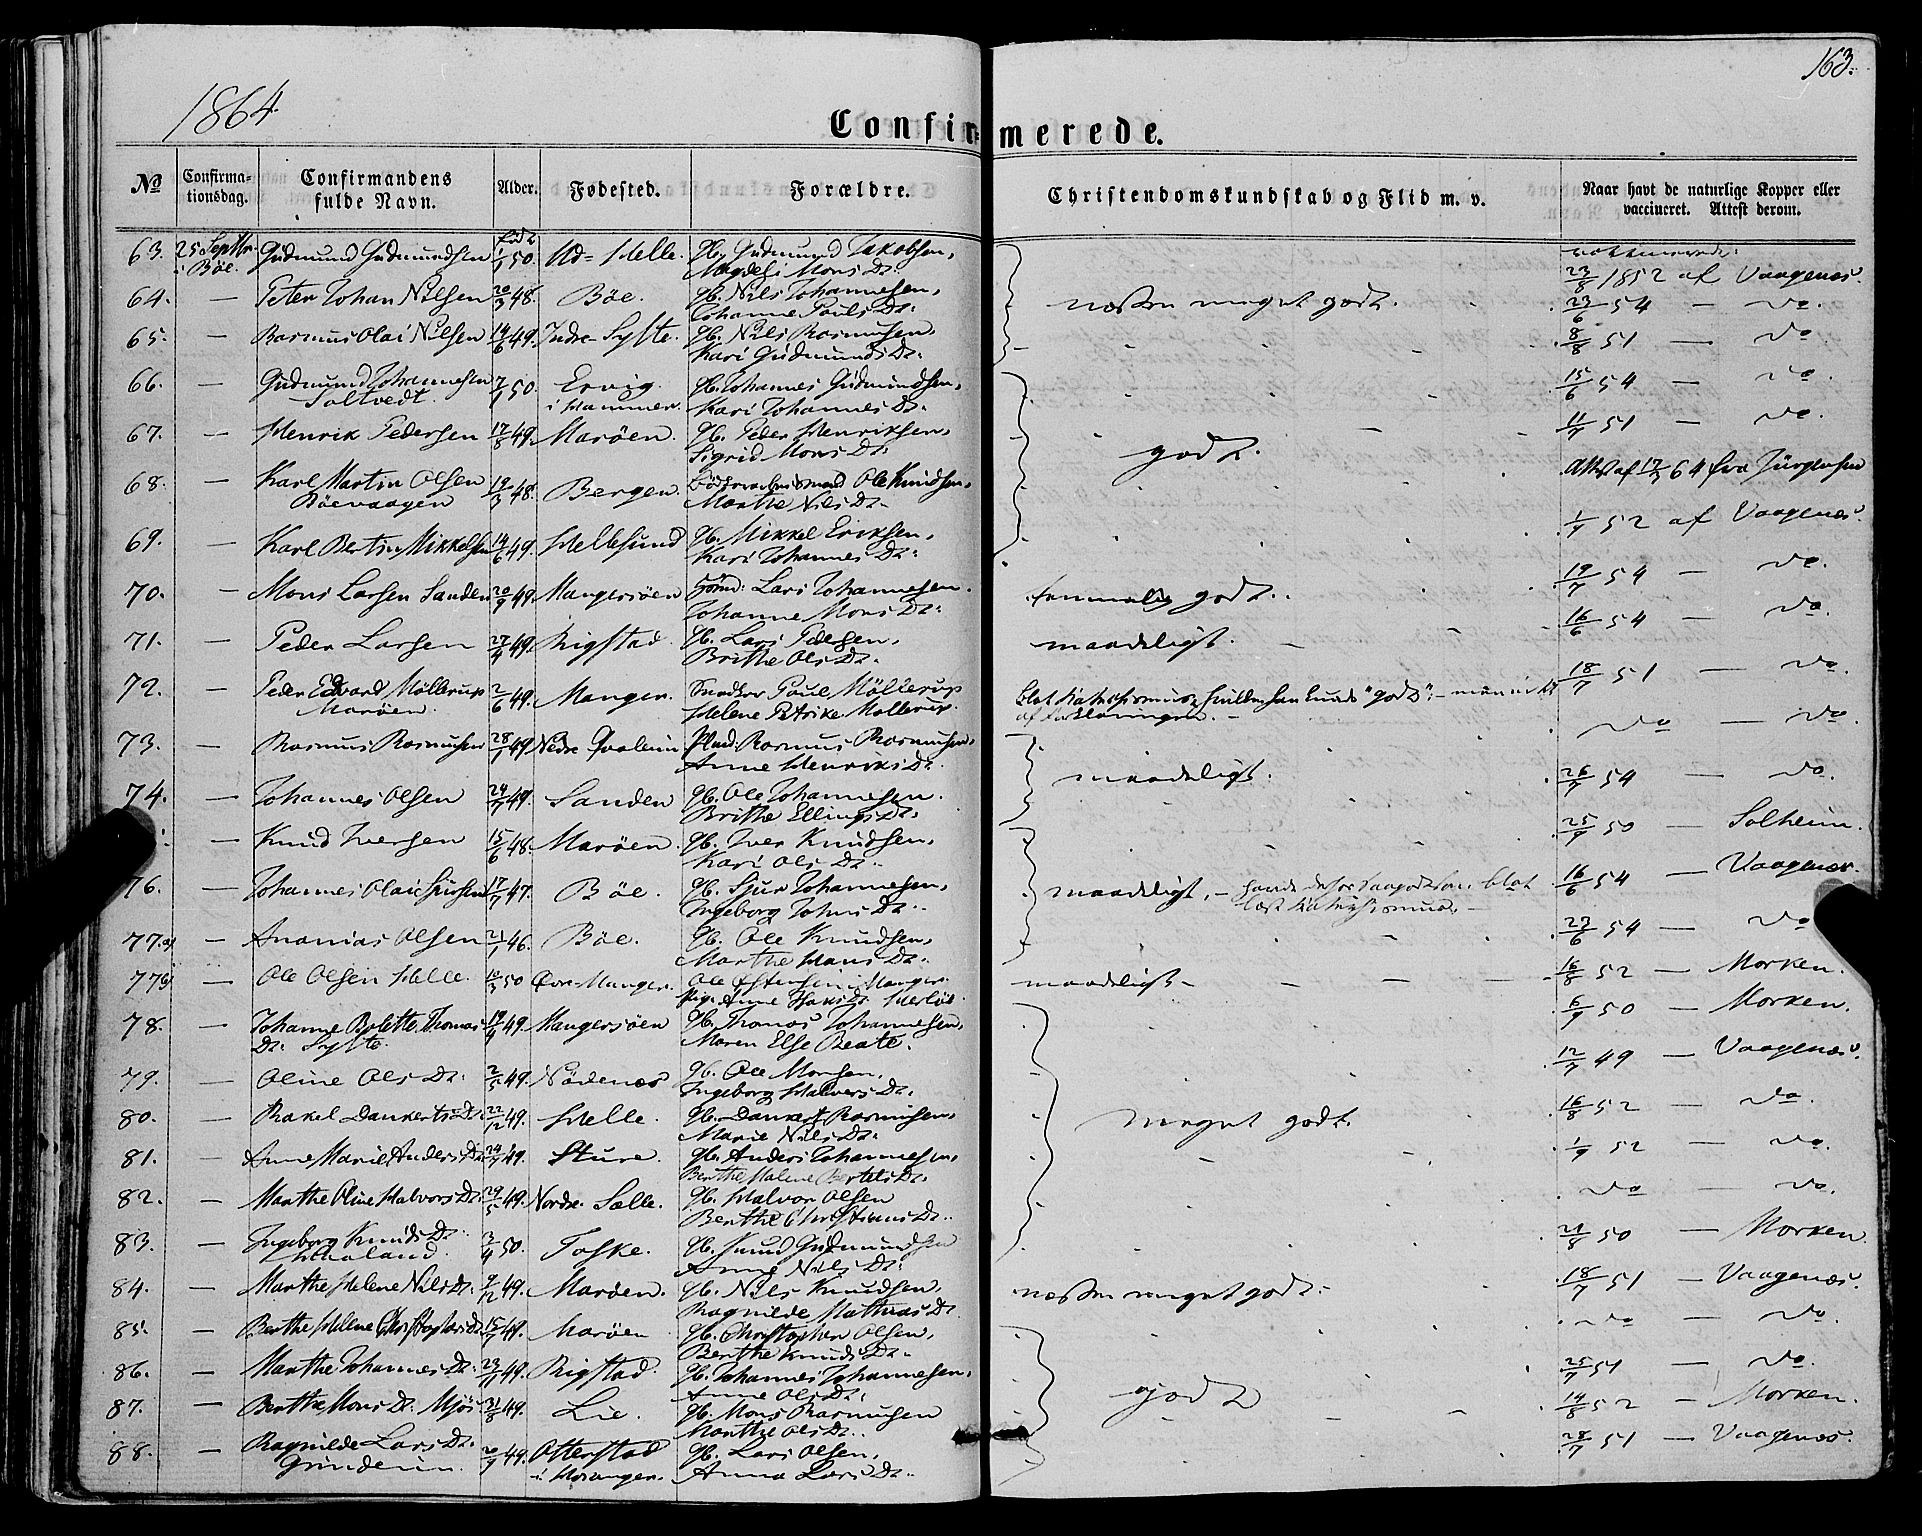 1864.
163.
Confirmerede.
No
Confirma-
tionsdag.
Confirmandens
fulde Navn.
Alder.
Fødested.
Forældre.
Christendomskundskab og Flid m. v.
Naar havt de naturlige Kopper eller
vaccineret. Attest derom.
63. 25 Septbr. Gudmund Gudmundsen født 1/1 50. Ud-Helle. Gb. Gudmund Jakobsen,
i Böe. Magdeli Mons Dr. 23/8 1852 af Vaagenæs.
64. — Peter Johan Nilsen 20/3 48. Böe. Gb. Nils Johannesen,
Johanne Pouls Dr. næsten meget godt. 23/6 54 — do.
65. — Rasmus Olai Nilsen 14/6 49. Indre-Sylte. Gb. Nils Rasmusen,
Kari Gudmunds Dr. 8/8 51 — do
66. — Gudmund Johannesen 7/1 50. Ervig. Gb. Johannes Gudmundsen,
Soltvedt. i Hammer. Kari Johannes Dr. 15/6 54 — do.
67. — Henrik Pedersen 17/8 49. Maröen. Gb. Peder Henriksen,
Sigrid Mons Dr. godt. 11/7 51 — do.
68. — Karl Martin Olsen 19/3 48. Bergen. Ole Knudsen,
Böevaagen Marthe Nils Dr. Att. af 17/3 64 fra Jürgensen
69. — Karl Bertin Mikkelsen 14/6 49. Hellesund Gb. Mikkel Eriksen,
Kari Johannes Dr. 1/9 52 af Vaagenæs.
70. — Mons Larsen Sanden 20/9 49. Mangersöen Lars Johannesen.
Johanne Mons Dr. temmelig godt. 19/7 54 — do.
71. — Peder Larsen 27/4 49. Rigstad. Gb. Lars Pedersen,
Brithe Ols Dr. maadeligt. 16/6 54 — do.
72. — Peder Edvard Möllerup 2/6 49. Manger. Snedker Poul Möllerup
Maröen. Helene Petrike Mollerup. blot Katechismus, hvilken han kunde "godt";
af Forklaringen. — 18/7 51 — do.
73. — Rasmus Rasmusen 28/1 49 Nedre Qvalem Rasmus Rasmusen,
Anne Henriks Dr. do — do.
74. — Johannes Olsen 29/7 49. Sanden Gb. Ole Johannesen.
Brithe Ellings Dr. maadeligt. 26/7 54 — do.
— Knud Iversen 15/6 48. Maröen. Gb. Iver Knudsen,
Kari Ols Dr. 25/9 50 — Solheim.
76. — Johannes Olai Sjursen 17/7 47. Böe. Gb. Sjur Johannesen,
Ingeborg Johns Dr. maadeligt, — blot
læst Katechismus. — 16/6 54 — Vaagenæs.
77a — Ananias Olsen 21/1 46. Böe. Gb. Ole Knudsen,
Marthe Hans Dr. 23/6 54 — do
77b — Ole Olsen Helle. 10/3 50 Övre-Manger. Ole Ostensen i Manger.
Pige Anne Hans Dr. maadeligt — 16/8 52 — Morken.
78. — Johanne Bolette Thomas 19/4 49. Mangersöen Gb. Thomas Johannesen,
Dr. Sylte. Maren Else Beate. 6/9 50 — Morken.
79. — Oline Ols Dr. 2/5 49. Nödenæs Gb. Ole Monsen,
Ingeborg Halvors Dr. 12/7 49 — Vaagenæs.
80. — Rakel Dankerts Dr. 22/12 49. Helle. Gb. Dankert Rasmusen,
Marie Nils Dr. meget godt. 16/8 52 — do.
81. — Anne Marie Anders Dr. 24/7 49. Sture. Gb. Anders Johannesen,
Berthe Malene Bertels Dr. 1/9 52 — do
82. — Marthe Oline Halvors Dr. 29/5 49. Nordre Sælle. Gb. Halvor Olsen
Berthe Christians Dr. do — do.
83. — Ingeborg Knuds Dr. 3/4 50. Toske. Gb. Knud Gudmundsen
Anne Nils Dr. 21/8 50 — Morken
84. — Marthe Helene Nils Dr. 9/12 49. Maröen. Gb. Nils Knudsen,
Ragnilde Mathias Dr. næsten meget godt. 18/7 51 — Vaagenæs.
85. — Berthe Helene Christophers Dr. 15/7 49. Maröen Gb. Christopher Olsen,
Berthe Knuds Dr. do — do
86. — Marthe Johannes Dr. 23/7 49. Rigstad. Gb. Johannes Johannesen,
Anne Ols Dr. 25/7 51 — do.
87. — Berthe Mons Dr. Mjös 31/8 49. Lie. Gb. Mons Rasmusen
Marthe Ols Dr. godt 14/8 52 — Morken.
88. — Ragnilde Lars Dr. 20/7 49. Otterstad Gb. Lars Olsen,
Grindeim. i Hosanger. Anna Lars Dr. 28/7 51 — Vaagenæs.